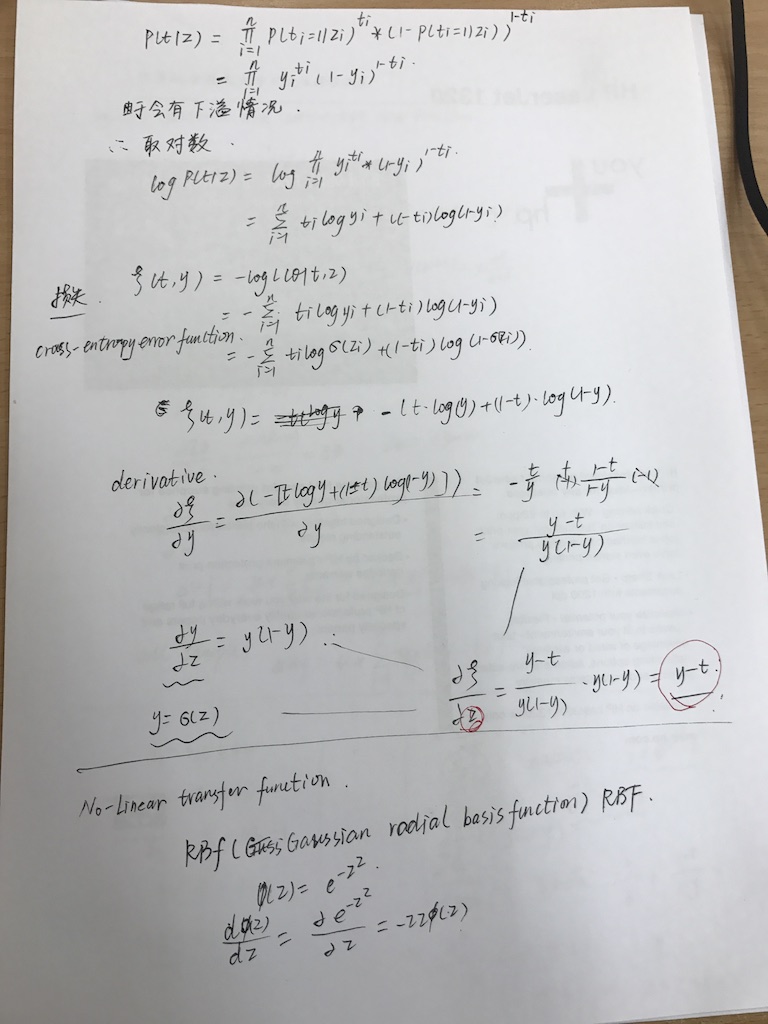 P(t|z) = ∏_{i=1}^{n} P(ti=1|zi)^{ti} * (1-P(ti=1|zi))^{1-ti}
= ∏_{i=1}^{n} yi^{ti} (1-yi)^{1-ti}.
由于会有下溢情况.
∴ 取对数.
log P(t|z) = log ∏_{i=1}^{n} yi^{ti} * (1-yi)^{1-ti}.
= ∑_{i=1}^{n} ti log yi + (1-ti) log(1-yi)
损失. ξ(t,y) = -log L(θ|t,z)
= -∑_{i=1}^{n} ti log yi + (1-ti) log(1-yi)
cross-entropy error function. = -∑_{i=1}^{n} ti log σ(zi) + (1-ti) log(1-σ(zi)).
ξ(t,y) = -(t·log(y) + (1-t)·log(1-y).
derivative.
∂ξ/∂y = ∂(-[t log y + (1-t) log(1-y)])/∂y = -t/y (+) (1-t)/(1-y) (-1)
= (y-t)/(y(1-y))
∂y/∂z = y(1-y) ∴
∂ξ/∂z = (y-t)/(y(1-y)) · y(1-y) = y-t.
y = σ(z)
No-Linear transfer function.
RBf (Gaussian radial basis function) RBF.
φ(z) = e^{-z^2}.
dφ(z)/dz = ∂e^{-z^2}/∂z = -2zφ(z)